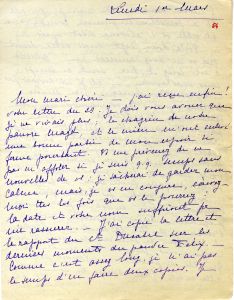 Lundi 1er Mars
Mon mari chéri j'ai reçue enfin!
votre lettre du 20. Je dois vous avouer que
je ne vivais plus; le chagrin de notre
pauvre et le mien m'ont enlevé
une bonne partie de mon espoir si
ferme pourtant. Si me prévenez de ne
pas m'affoler si je suis q.q. temps sans
nouvelles de vous, je tâcherai de garder mon
calme, mais, je vous en conjure, écrivez
moi tous les fois que vous le pourrez,
la date et votre nom suffiront pr
me rassurer. — J'ai copié la lettre et
le rapport du Ct sur les
derniers moments du pauvre Felix.
Comme c'est assez long, je n'ai pas
le temps d'en faire deux copies.